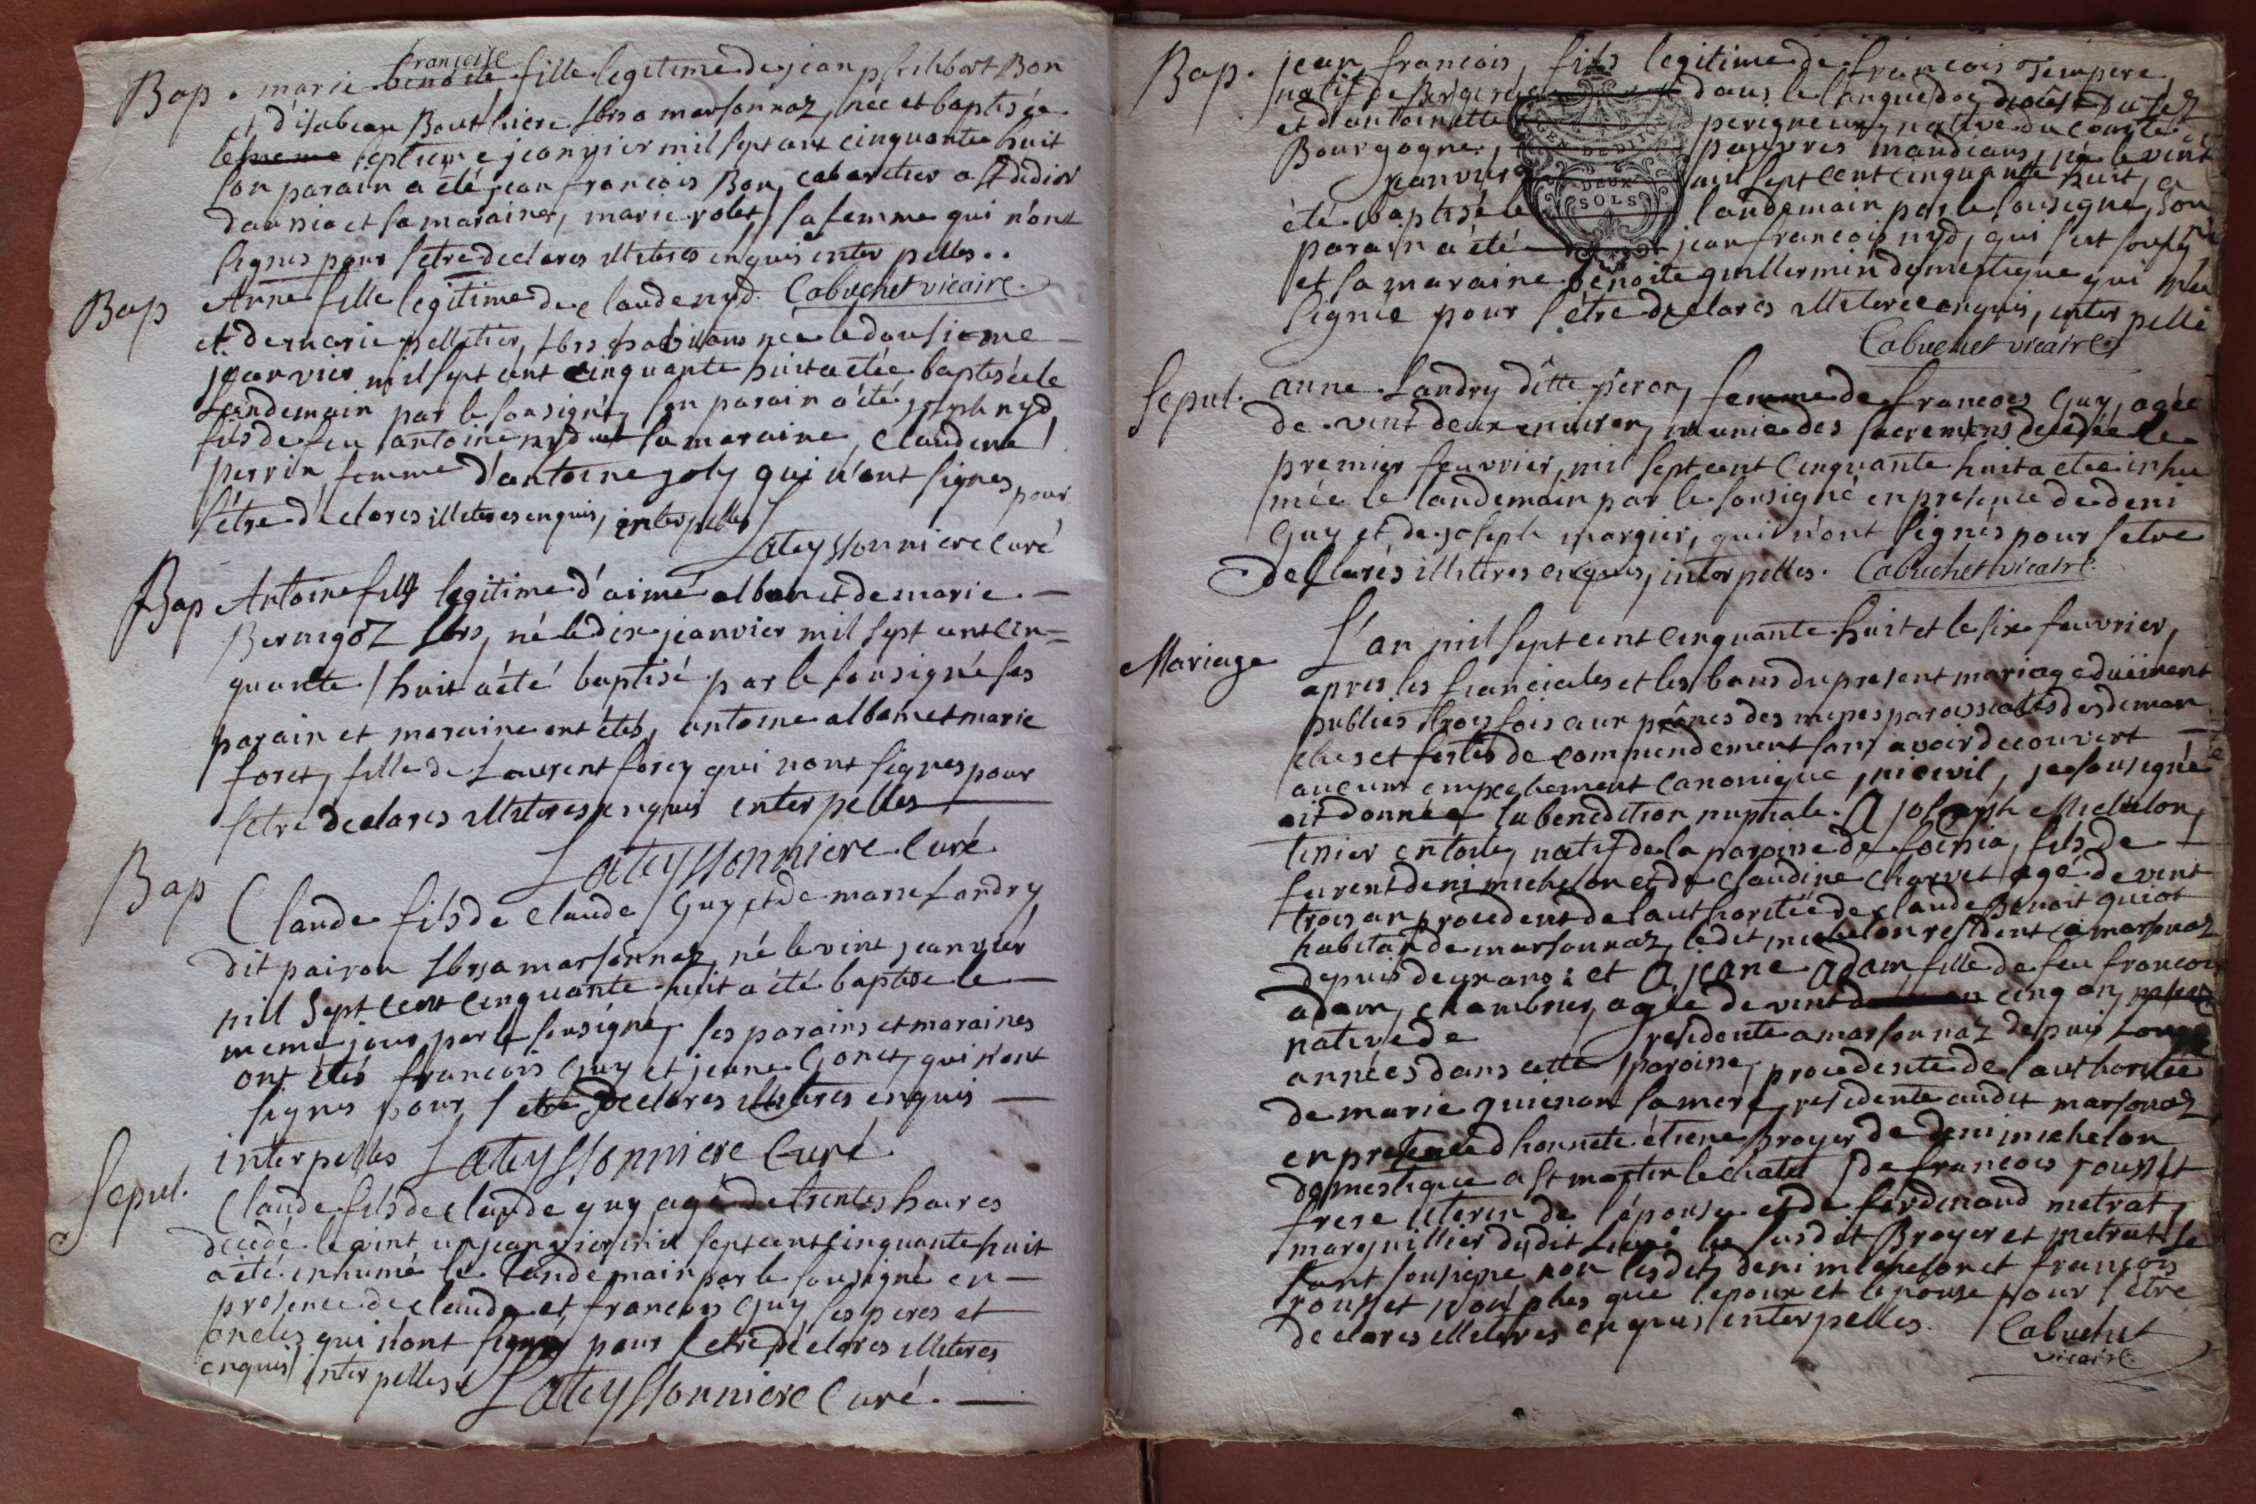 françoise
Bap. marie benoite fille legitime de jean philibert Bon
et d'isabeau Bouthiere hbrs a marsonnaz, née et baptisée
le meme septieme jeanvier mil sept cent cinquante huit
son parain a été jean francois Bon, cabaretier a St didier
d'aussia et sa maraine, marie rolet, sa femme qui n'ont
signés pour s'etre declarés illiteres enquis interpellés..
Cabuchet vicaire.
Bap Anne fille legitime de claude nyd
et de marie pelletier, hbrs habitans née le dousieme
jeanvier mil sept cent cinquante huit a étée baptisée le
landemain par le sousigné, son parain a été joseph nyd
fils de feu antoine nyd et sa maraine, claudine
perrin femme d'antoine joly qui n'ont signés pour
s'être déclarés illiteres enquis, interpellés
Lateyssonniere curé
Bap Antoine fils legitime d'aimé alban et de marie
Bernigoz hbrs, né le dix jeanvier mil sept cent cin=
quante huit a été baptisé par le sousigné ses
parain et maraine ont étés, antoine alban et marie
foret, fille de Laurent forey qui nont signés pour
s'etre declarés illiteres enquis interpellés
Lateyssonniere Curé
Bap Claude fils de claude Guy et de marie Landry
dit pairon hbrs a marsonnaz, né le vint jeanvier
mil sept cent cinquante huit a été baptisé le
meme jour par le sousigné, ses parains et maraines
ont étés francois Guy et jeane Gonet, qui n'ont
signés pour s'etre declarés illiteres enquis
interpellés Lateyssonniere Curé
Sepul. Claude fils de claude guy agé de trentes heures
decédé le vint un jeanvier mil sept cent cinquante huit
a été inhumé le landemain par le sousigné en
presence de claude et francois Guy, ses peres et
oncles qui n'ont signés pour s'etre déclarés illiteres
enquis interpellés Lateyssonniere Curé.
Bap. jean francois, fils legitime de francois Tempere,
natif de dans le languedoc diocèse
et d'antoinette perigneux, native du comté de
Bourgogne, pauvres mandians, né le vint
janvier mil sept cent cinquante huit, a
été baptisé le landemain par le sousigné, son
parain a été jean francois nyd, qui s'est sousigné
et sa maraine benoite guillermin domestique qui n'a
signée pour s'être declarés illiterée enquis, interpellé
GEN. DE DIJON
DEUX
SOLS
Cabuchet vicaire
Sepul. anne Landry ditte peron, femme de francois Guy, agée
de vint deux environ, munie des sacremens decedée le
premier feuvrier, mil sept cent cinquante huit a etée inhu
mée le landemain par le sousigné en presence de deni
Guy et de joseph margier, qui n'ont signés pour s'etre
declarés illiteres enquis, interpellés. Cabuchet vicaire
Mariage L'an mil sept cent cinquante huit et le six feuvrier,
apres les fianciales et les bans du present mariage duëment
publiés trois fois aux prônes des messes paroissiales des diman
ches et festes de commendement sans avoir decouvert
aucun empechement canonique, ni civil, je sousigné
ait donnée la benediction nuptiale. A joseph Michelon,
tissier en toile, natif de la paroisse de foissia, fils de
furent deni michelon et de claudine charvet agé de vint
trois an procedent de l'authoritée de claude Benoit quiot
habitan de marsonnaz, le dit michelon resident a marsonaz
depuis dix ans: et A jeane Adam, fille de feu francois
adam, chambrier, agée de vint cinq an,
native de residente a marsonnaz depuis
années dans cette paroisse, procedente de l'authoritée
de marie quienon sa mere, residente audit marsonaz
en presence d'honnete étiene Broyer de deni michelon
domestique a St martin le chatel, de francois rousset
frere uterin de l'épouse et de ferdinand metrat,
marguillier dudit lieu: les susdit Broyer et metrat se
sont sousigne non lesdit deni michelon et francois
rousset non plus que l'epoux et l'epouse pour s'être
declarés illeteres enquis interpellés. Cabuchet
vicaire